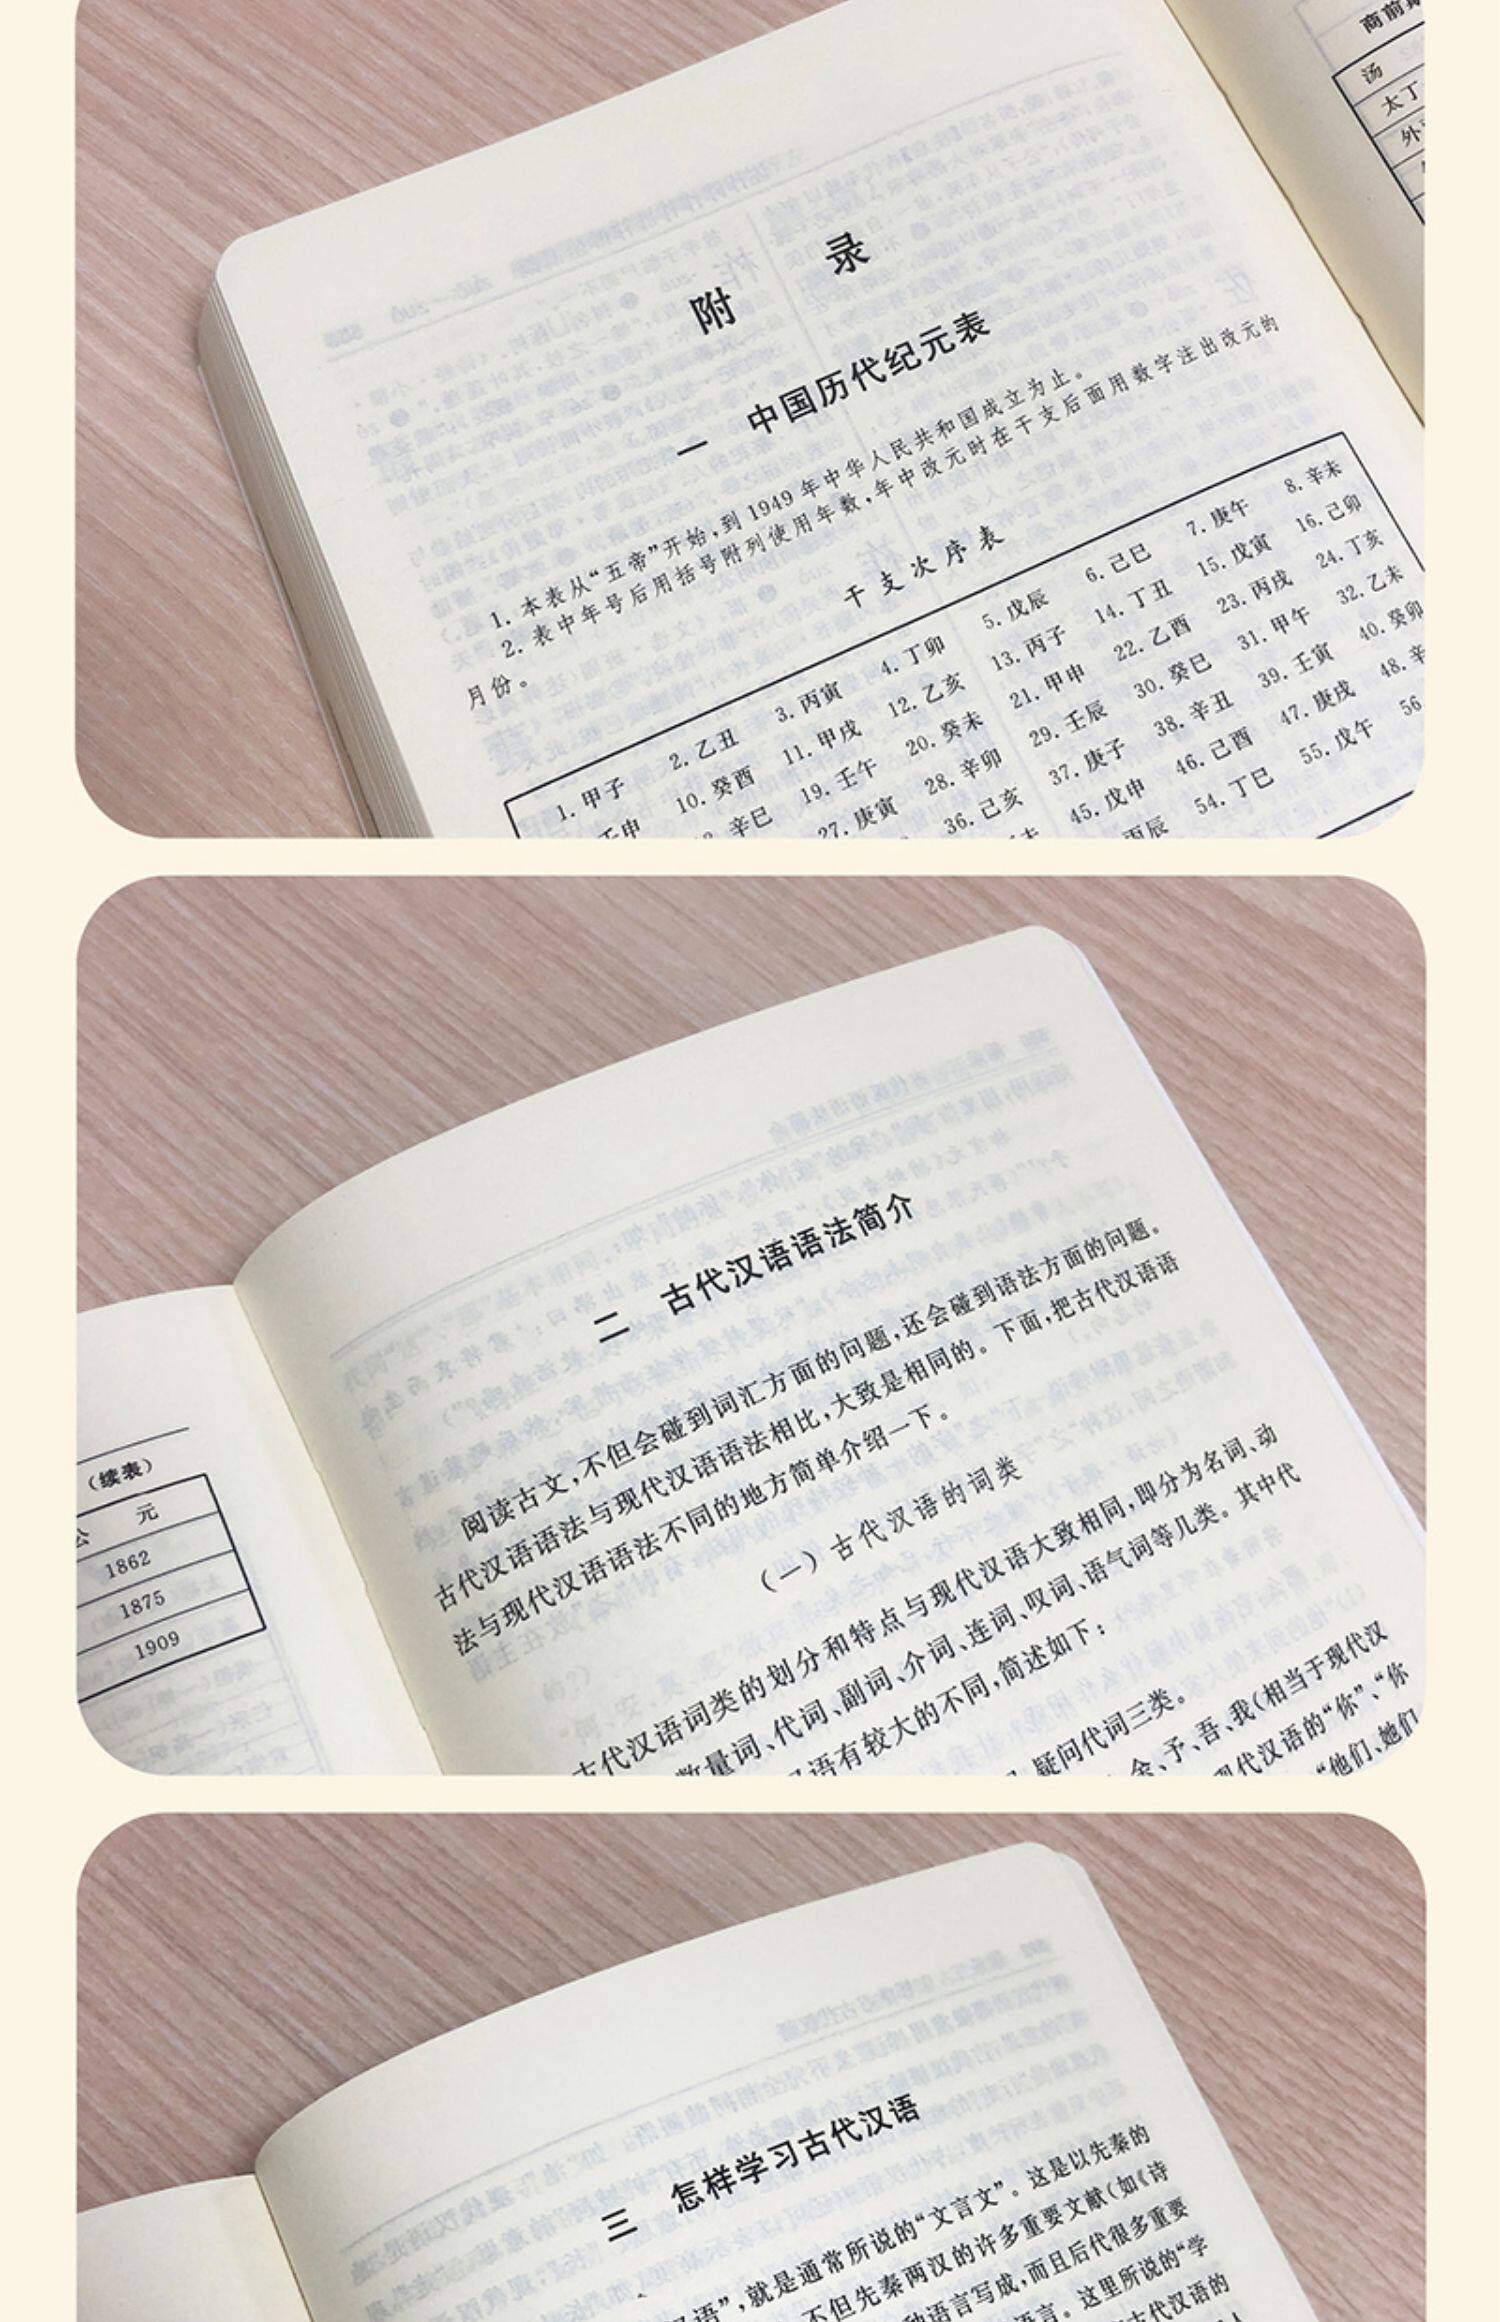 商前
汤
太丁
外
附 录
一 中国历代纪元表
1. 本表从“五帝”开始,到 1949 年中华人民共和国成立为止。
2. 表中年号后用括号附列使用年数,年中改元时在干支后面用数字注出改元的
月份。
干支次序表
1. 甲子 2. 乙丑 3. 丙寅 4. 丁卯 5. 戊辰 6. 己巳 7. 庚午 8. 辛未
壬申 10. 癸酉 11. 甲戌 12. 乙亥 13. 丙子 14. 丁丑 15. 戊寅 16. 己卯
辛巳 19. 壬午 20. 癸未 21. 甲申 22. 乙酉 23. 丙戌 24. 丁亥
27. 庚寅 28. 辛卯 29. 壬辰 30. 癸巳 31. 甲午 32. 乙未
36. 己亥 37. 庚子 38. 辛丑 39. 壬寅 40. 癸卯
45. 戊申 46. 己酉 47. 庚戌 48. 辛
丙辰 54. 丁巳 55. 戊午 56
(续表)
公 元
1862
1875
1909
二 古代汉语语法简介
阅读古文,不但会碰到词汇方面的问题,还会碰到语法方面的问题。
古代汉语语法与现代汉语语法相比,大致是相同的。下面,把古代汉语语
法与现代汉语语法不同的地方简单介绍一下。
(一) 古代汉语的词类
古代汉语词类的划分和特点与现代汉语大致相同,即分为名词、动
数量词、代词、副词、介词、连词、叹词、语气词等几类。其中代
语有较大的不同,简述如下:
疑问代词三类。
余、予、吾、我(相当于现代汉
现代汉语的“你”、“你
“他们、她们
三 怎样学习古代汉语
汉语”,就是通常所说的“文言文”。这是以先秦的
不但先秦两汉的许多重要文献(如《诗
种语言写成,而且后代很多重要
语言。这里所说的“学
古代汉语的